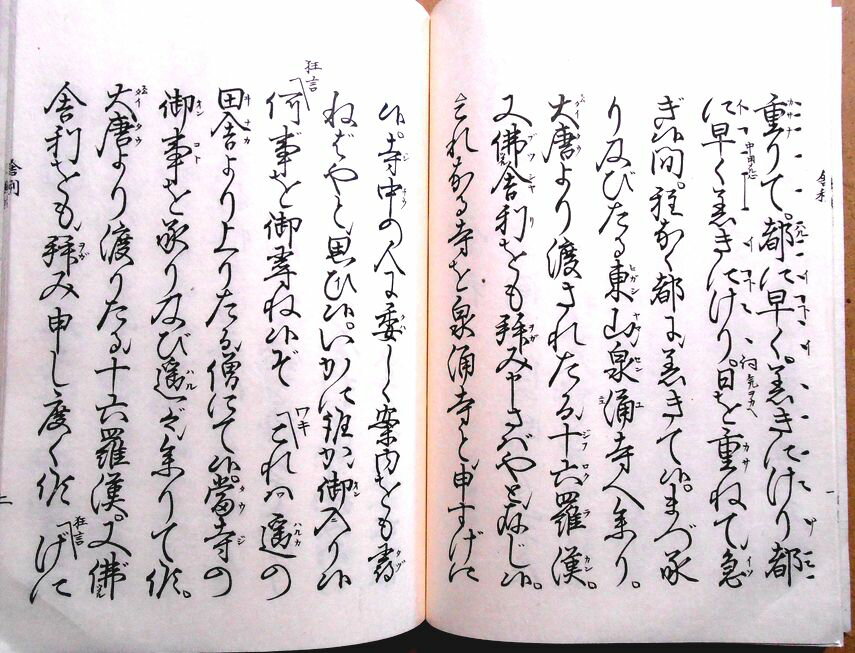 重りて。都に早く。着きにけり都
に早く着きにけり。日を重ねて急
ぎ候間。程なく都に着きて候。まづ承
り及びたる東山泉涌寺へ参り。
大唐より渡されたる十六羅漢。
又佛舎利をも拝み申さばやと存じ候。
これなる寺を泉涌寺と申すげに
候。寺中の人に委しく案内をも尋
ねばやと思ひ候。いかに誰か御入り候
狂言
何事を御尋ね候ぞ
ワキ
これは遥の
田舎より上りたる僧にて候。當寺の
御事を承り及び遥々参りて候。
大唐より渡りたる十六羅漢。又佛
舎利をも拝み申し度く候
狂言
げに
舎利
二
一